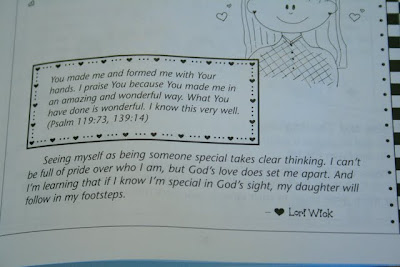 You made me and formed me with Your
hands. I praise You because You made me in
an amazing and wonderful way. What You
have done is wonderful. I know this very well.
(Psalm 119:73, 139:14)
Seeing myself as being someone special takes clear thinking. I can't
be full of pride over who I am, but God's love does set me apart. And
I'm learning that if I know I'm special in God's sight, my daughter will
follow in my footsteps.
– ♥ Lori Wick